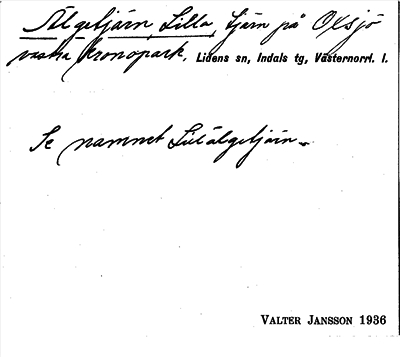 Älgetjärn, Lilla, tjärn på Oxsjö
västra kronopark, Lidens sn, Indals tg, Västernorrl. l.
Se namnet Lillälgetjärn.
VALTER JANSSON 1936